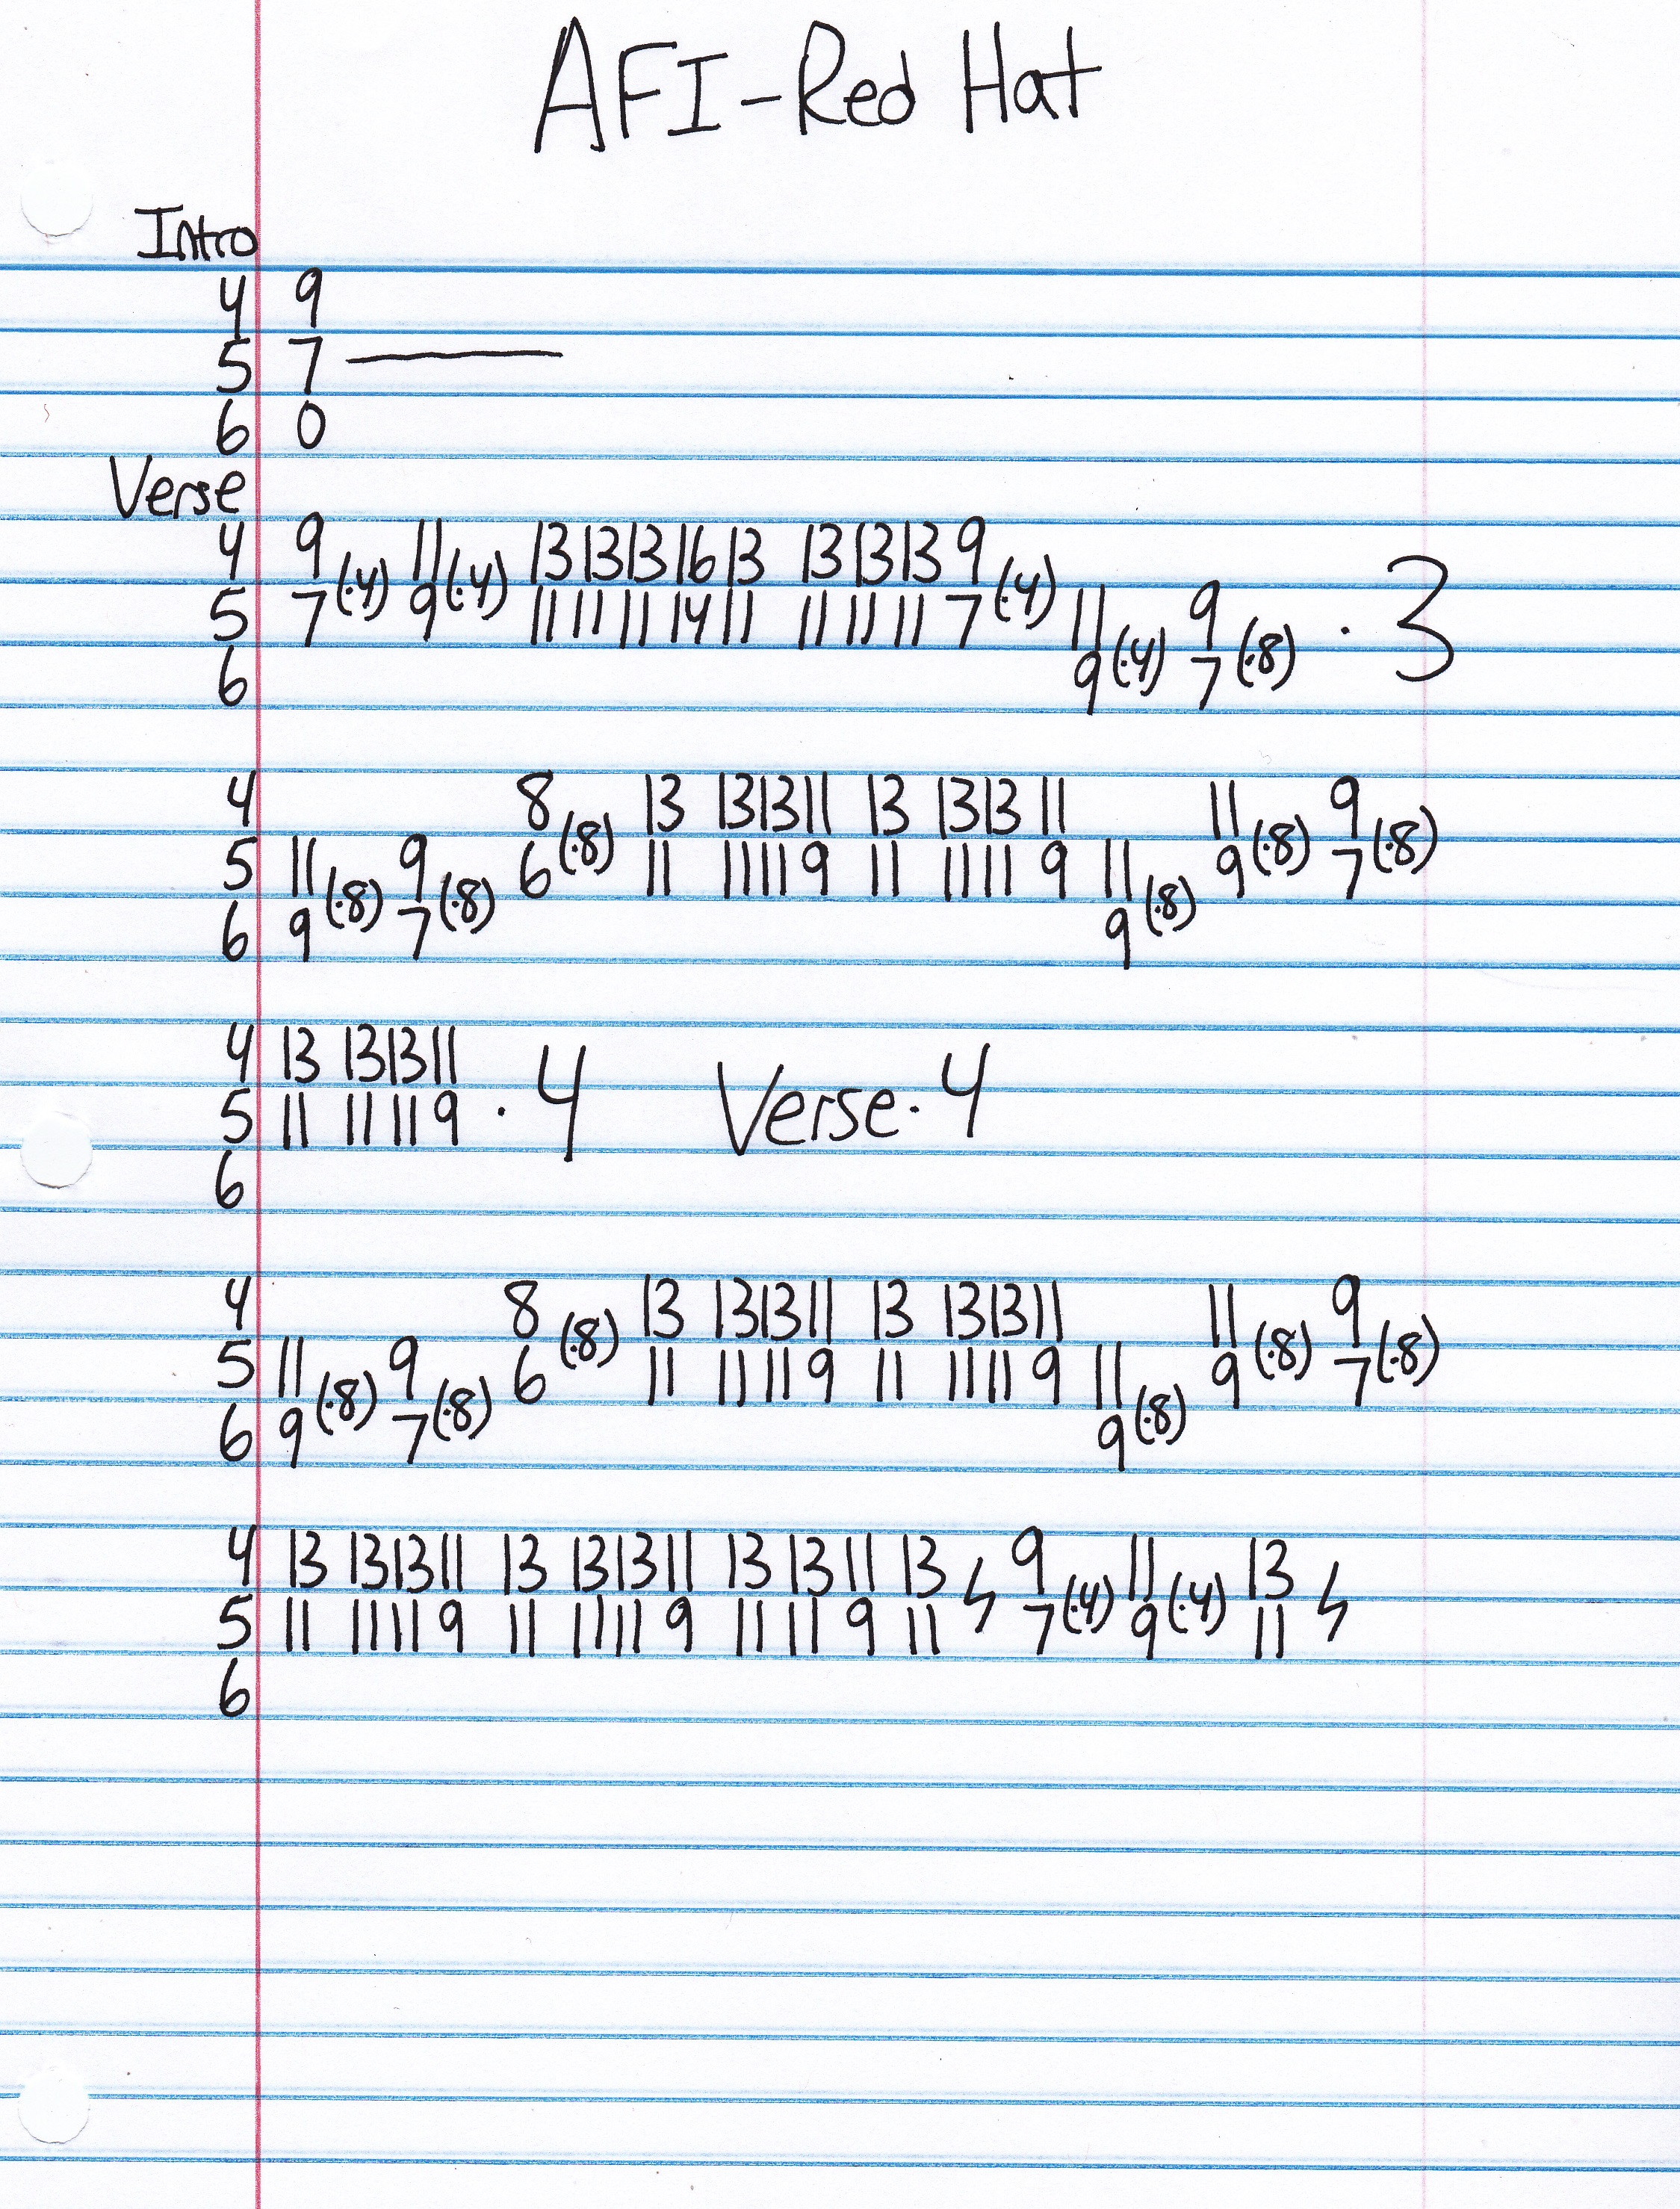 AFI-Red Hat
Intro
4 9
5 7 ———
6 0
Verse
4 9 (·4) 11 (·4) 13 13 13 16 13 13 13 13 9 (·4)
5 7 9 11 11 11 14 11 11 11 11 7 11 (·4) 9 (·8) · 3
6 9 7
4 8 (·8) 13 13 13 11 13 13 13 11 11 (·8) 9 (·8)
5 11 (·8) 9 (·8) 6 11 11 11 9 11 11 11 9 11 (·8) 9 7
6 9 7 9
4 13 13 13 11
5 11 11 11 9 · 4 Verse · 4
6
4 8 (·8) 13 13 13 11 13 13 13 11 11 (·8) 9 (·8)
5 11 (·8) 9 (·8) 6 11 11 11 9 11 11 11 9 11 (·8) 9 7
6 9 7 9
4 13 13 13 11 13 13 13 11 13 13 11 13 9 (·4) 11 (·4) 13
5 11 11 11 9 11 11 11 9 11 11 9 11 7 9 11
6